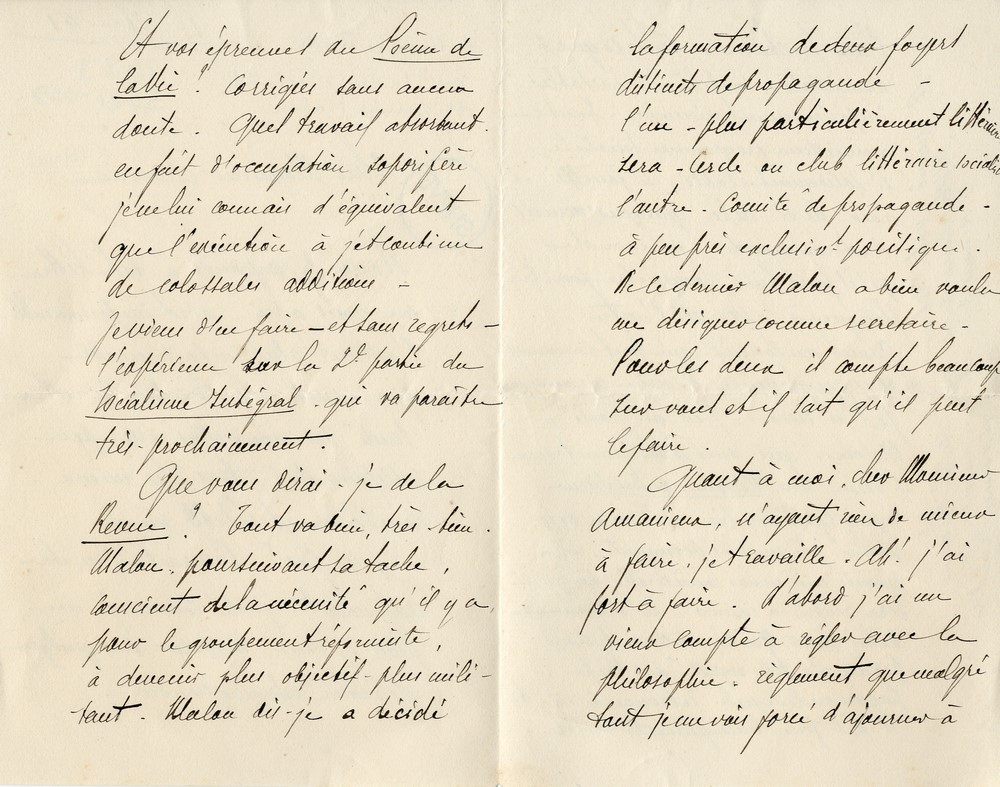 Et vos épreuves du Poème de
la Vie ? Corrigées sans aucun
doute. Quel travail absorbant.
en fait d'occupation soporifère
je ne lui connais d'équivalent
que l'exécution à jet continu
de colossales additions –
Je viens d'en faire – et sans regrets –
l'expérience sur la 2e partie du
Socialisme Intégral. qui va paraître
très-prochainement.
Que vous dirai-je de la
Revue ? Tout va bien, très-bien.
Malon. poursuivant sa tache,
conscient de la nécessité qu'il y a,
pour le groupement réformiste,
à devenir plus objectif – plus mili-
tant. Malon dis-je a décidé
la formation de deux foyers
distincts de propagande –
l'un – plus particulièrement littéraire
sera – Cercle ou club littéraire socialiste
l'autre – Comité de propagande –
à peu près exclusivt politique.
De ce dernier Malon a bien voulu
me désigner comme secrétaire –
Pour les deux il compte beaucoup
sur vous et il sait qu'il peut
le faire.
Quant à moi, cher Monsieur
Amanieux, n'ayant rien de mieux
à faire, je travaille. Ah! j'ai
fort à faire. D'abord j'ai un
vieux compte à régler avec la
Philosophie. règlement que malgré
tout je me vois forcé d'ajourner à